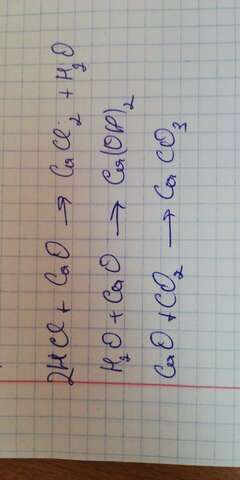 2HCl + CaO → CaCl₂ + H₂O
H₂O + CaO → Ca(OH)₂
CaO + CO₂ → CaCO₃